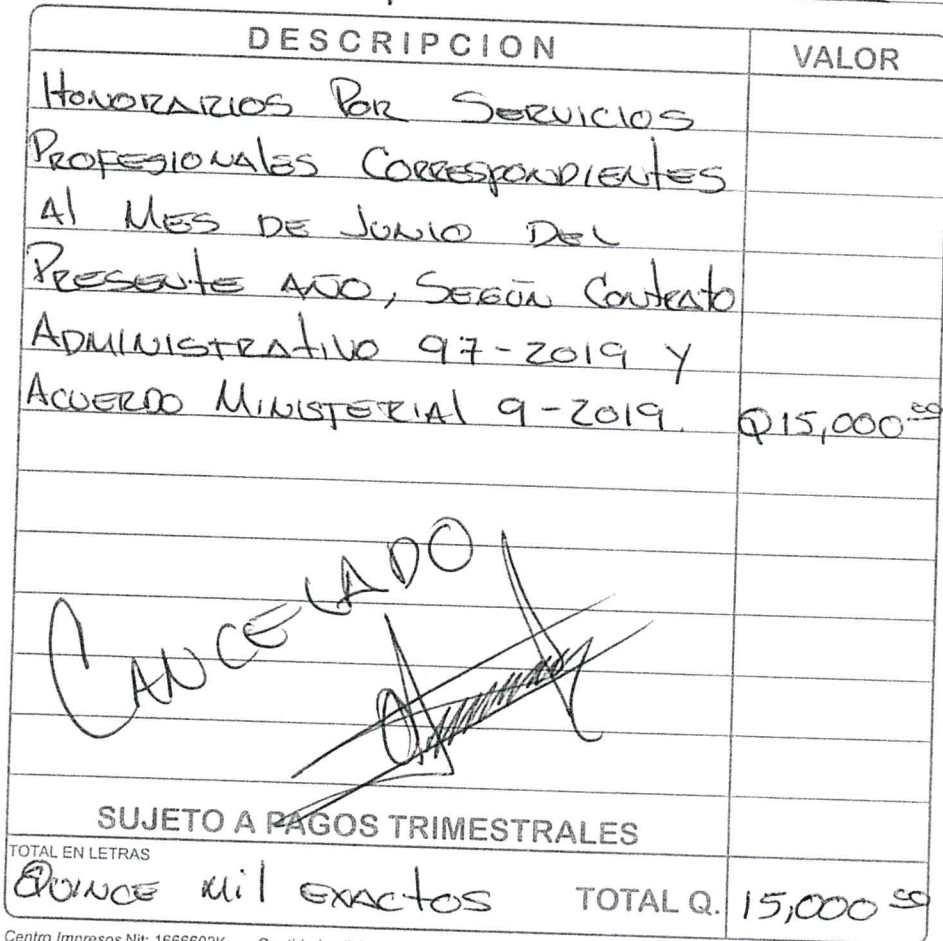 DESCRIPCION VALOR
HONORARIOS POR SERVICIOS
PROFESIONALES CORRESPONDIENTES
Al MES DE JUNIO DEL
PRESENTE AÑO, SEGÚN Contrato
ADMINISTRATIVO 97-2019 Y
ACUERDO MINISTERIAl 9-2019. Q15,000.00
CANCELADO
SUJETO A PAGOS TRIMESTRALES
TOTAL EN LETRAS
QUINCE Mil EXACTOS TOTAL Q. 15,000.00
Centro Impresos Nit: